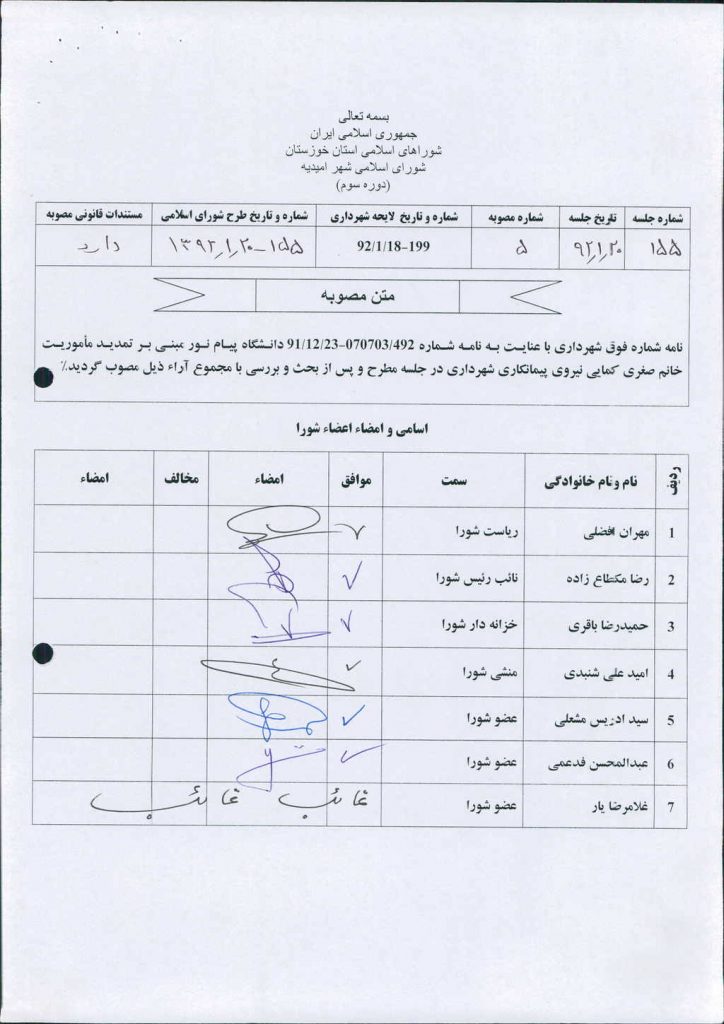 بسمه تعالی
جمهوری اسلامی ایران
شوراهای اسلامی استان خوزستان
شورای اسلامی شهر امیدیه
(دوره سوم)
شماره جلسه تاریخ جلسه شماره مصوبه شماره و تاریخ لایحه شهرداری شماره و تاریخ طرح شورای اسلامی مستندات قانونی مصوبه
۱۵۵ ۹۲/۱/۲۰ ۵ 92/1/18-199 ۱۳۹۲/۱/۲۰-۱۵۵ دارد
متن مصوبه
نامه شماره فوق شهرداری با عنایت به نامه شماره 91/12/23-070703/492 دانشگاه پیام نور مبنی بر تمدید مأموریت
خانم صغری کمایی نیروی پیمانکاری شهرداری در جلسه مطرح و پس از بحث و بررسی با مجموع آراء ذیل مصوب گردید.٪
اسامی و امضاء اعضاء شورا
ردیف نام ونام خانوادگی سمت موافق امضاء مخالف امضاء
1 مهران افضلی ریاست شورا
2 رضا مکطاع زاده نائب رئیس شورا
3 حمیدرضا باقری خزانه دار شورا
4 امید علی شنبدی منشی شورا
5 سید ادریس مشعلی عضو شورا
6 عبدالمحسن فدعمی عضو شورا
7 غلامرضا یار عضو شورا غائب غائب